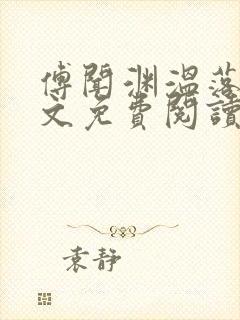 傅聞渊溫落
文免費閱讀
袁静